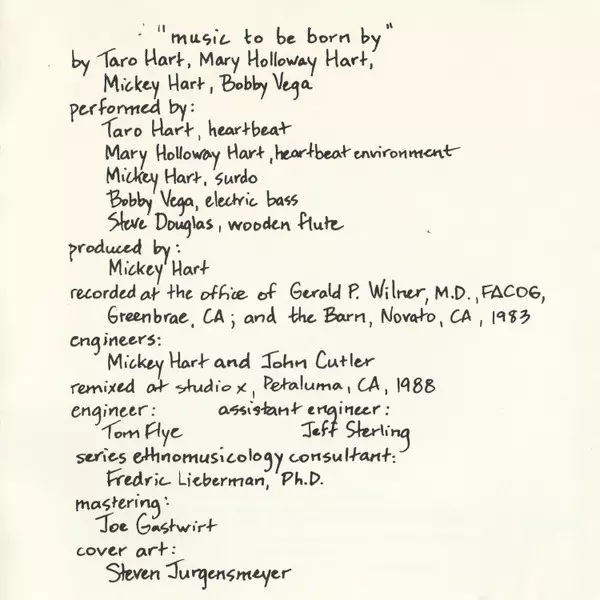 "music to be born by"
by Taro Hart, Mary Holloway Hart,
Mickey Hart, Bobby Vega
performed by:
Taro Hart, heartbeat
Mary Holloway Hart, heartbeat environment
Mickey Hart, surdo
Bobby Vega, electric bass
Steve Douglas, wooden flute
produced by:
Mickey Hart
recorded at the office of Gerald P. Wilner, M.D., FACOG,
Greenbrae, CA; and the Barn, Novato, CA, 1983
engineers:
Mickey Hart and John Cutler
remixed at studio x, Petaluma, CA, 1988
engineer: assistant engineer:
Tom Flye Jeff Sterling
series ethnomusicology consultant:
Fredric Lieberman, Ph.D.
mastering:
Joe Gastwirt
cover art:
Steven Jurgensmeyer